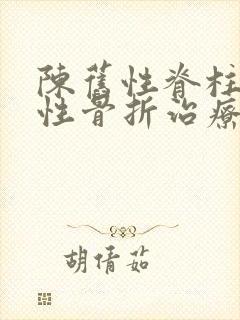 陳舊性脊柱
性骨折治療
胡倩茹